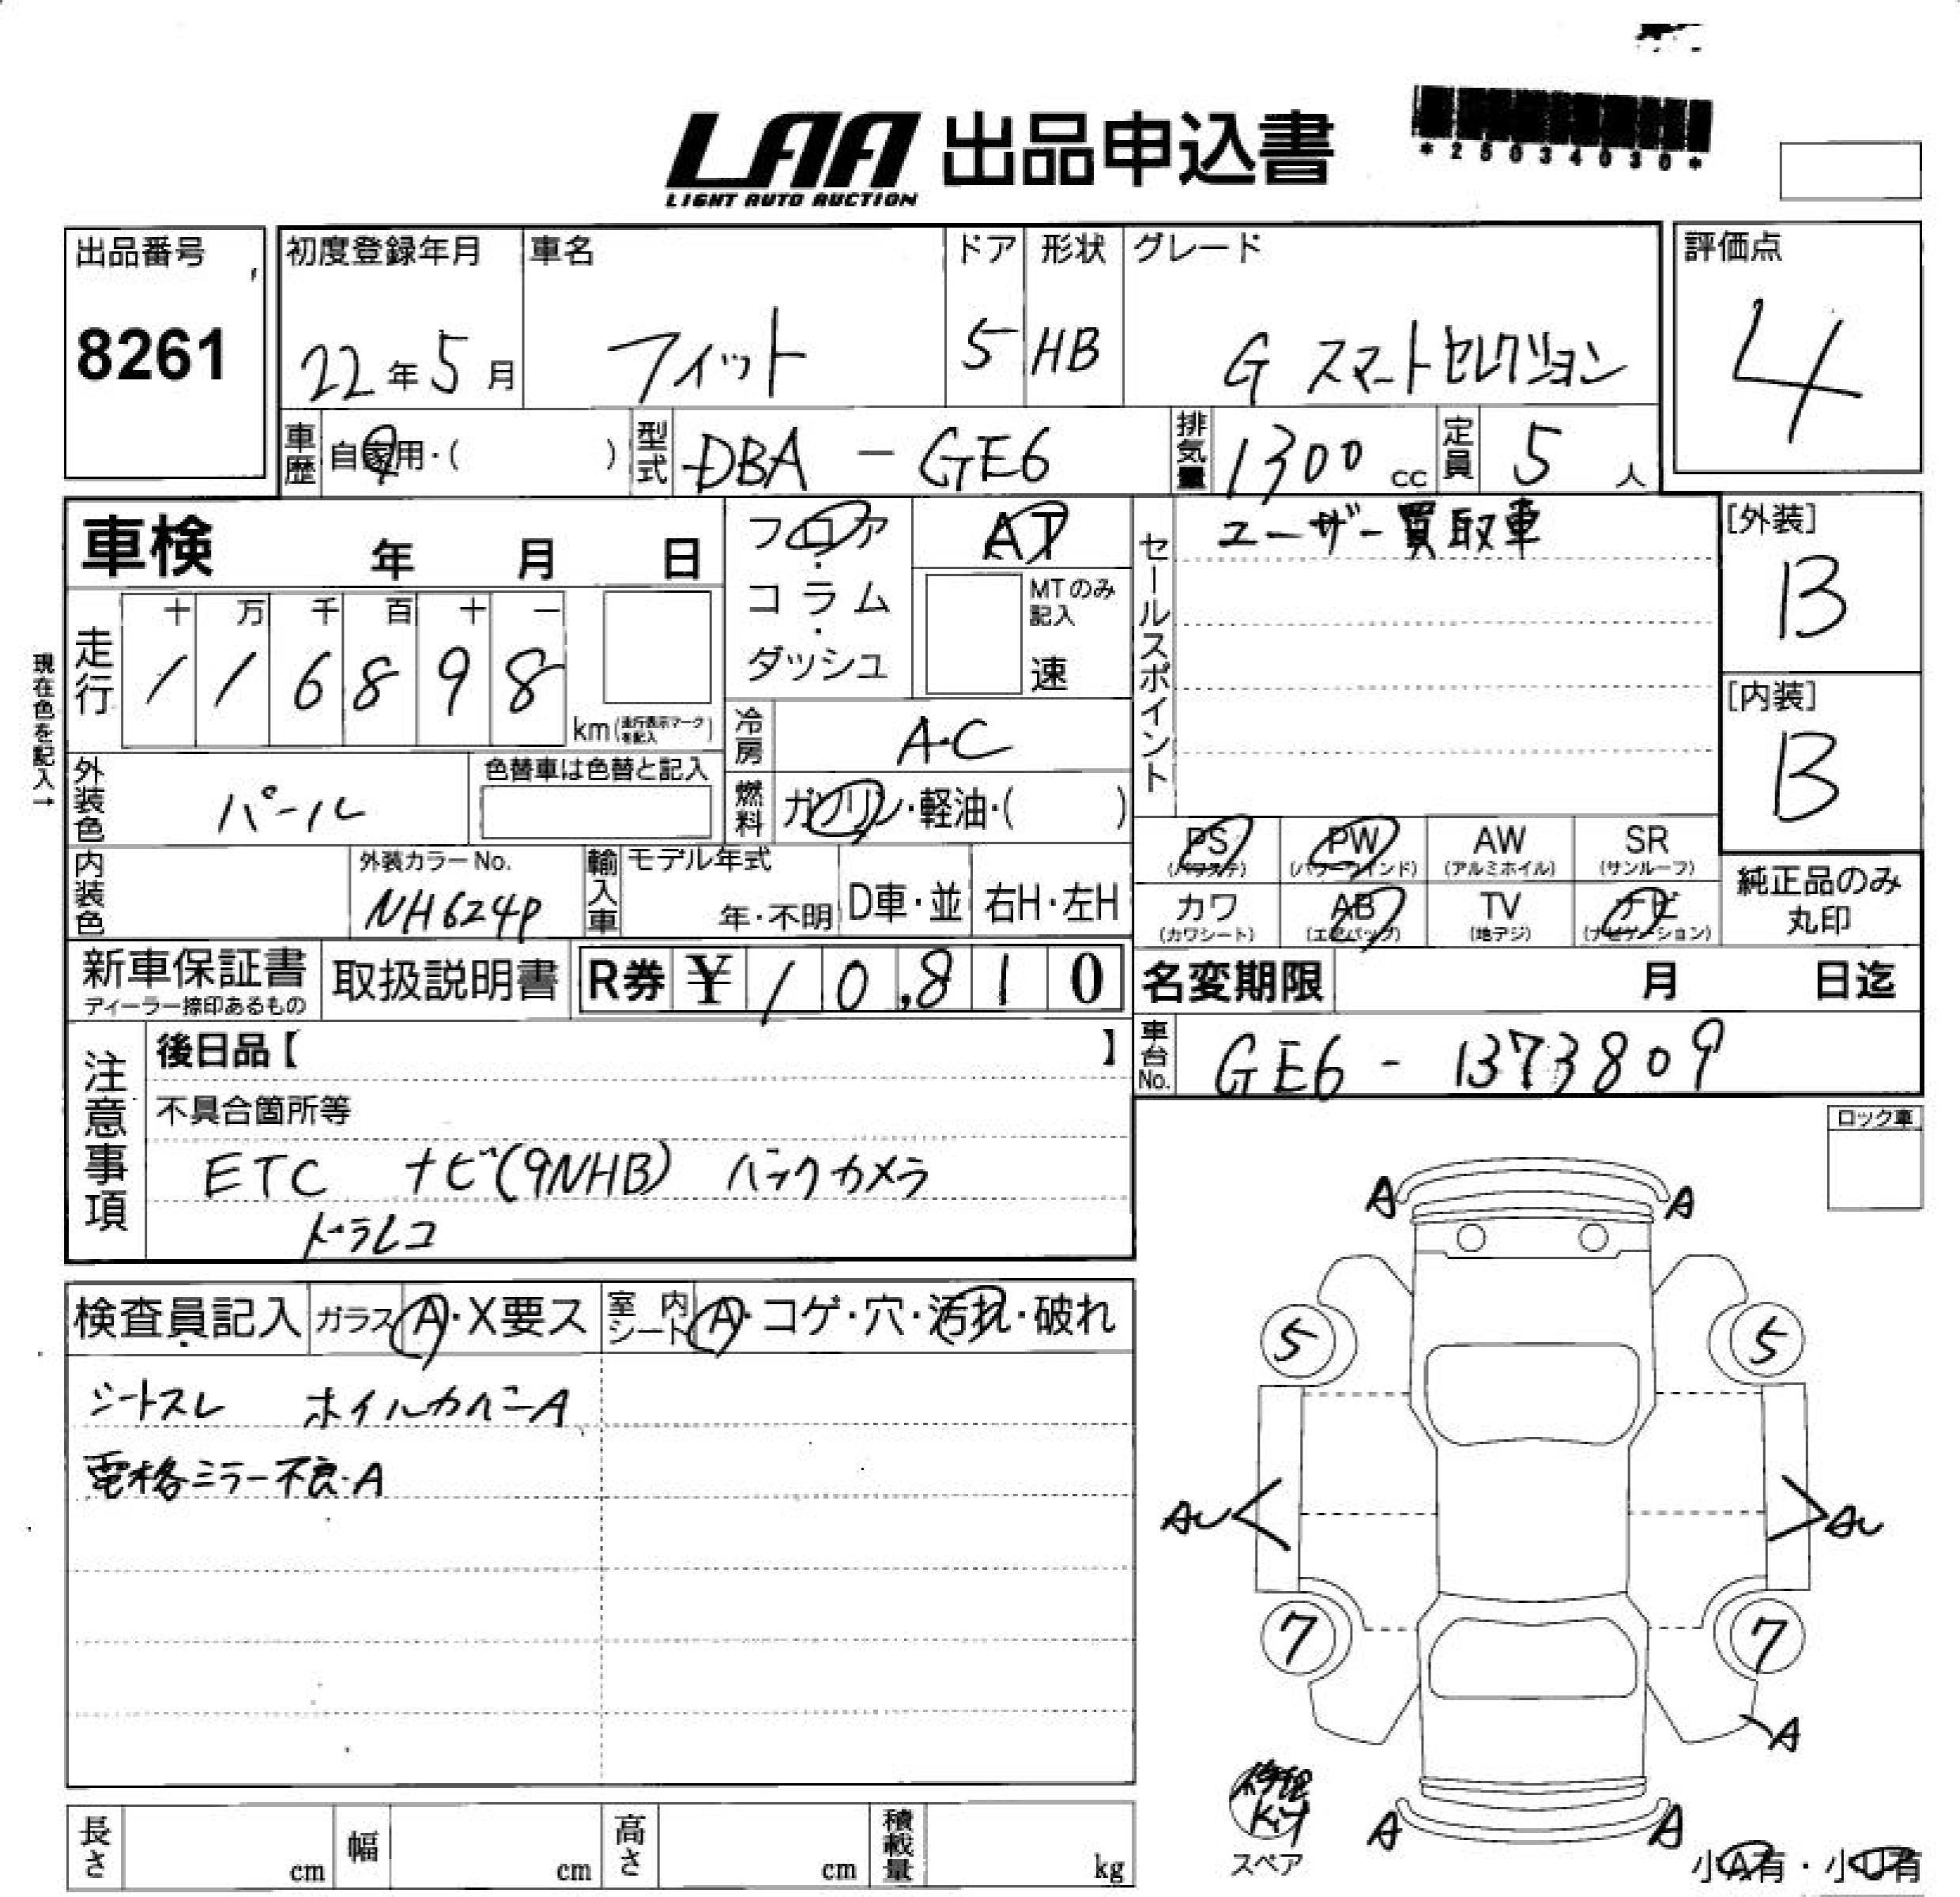 LAA 出品申込書
LIGHT AUTO AUCTION
*25034030*
出品番号
8261
初度登録年月
22年5月
車名
フィット
ドア
5
形状
HB
グレード
G スマートセレクション
評価点
4
車歴
自家用・( )
型式
DBA - GE6
排気量
1300 cc
定員
5 人
車検 年 月 日
フロア・コラム・ダッシュ
AT
MTのみ記入
速
セールスポイント
ユーザー買取車
[外装]
B
[内装]
B
現在色を記入→
走行
十 万 千 百 十 一
1 1 6 8 9 8
km(走行表示マークを記入)
冷房
A・C
外装色
パール
色替車は色替と記入
燃料
ガソリン・軽油・( )
内装色
外装カラーNo.
NH624P
輸入車
モデル年式
年・不明
D車・並
右H・左H
PS
(パワステ)
PW
(パワーウインド)
AW
(アルミホイル)
SR
(サンルーフ)
カワ
(カワシート)
AB
(エアバッグ)
TV
(地デジ)
ナビ
(ナビゲーション)
純正品のみ
丸印
新車保証書
ディーラー捺印あるもの
取扱説明書
R券 ¥ 10,810
名変期限 月 日迄
車台No.
GE6 - 1373809
注意事項
後日品【 】
不具合箇所等
ETC ナビ(9NHB) バックカメラ
ドラレコ
ロック車
検査員記入
ガラス A・X要ス
室内シート A・コゲ・穴・汚れ・破れ
シートスレ ホイルカバーA
電格ミラー不良・A
A A
5 5
AU AU
7 7
A
A A
修理
Kit
スペア
小A有・小U有
長さ cm
幅 cm
高さ cm
積載量 kg